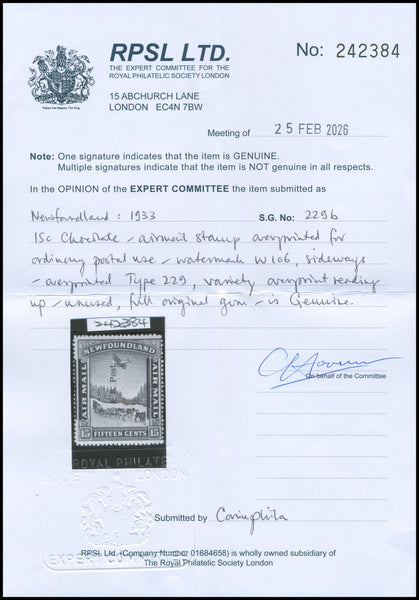 RPSL LTD.
THE EXPERT COMMITTEE FOR THE
ROYAL PHILATELIC SOCIETY LONDON
15 ABCHURCH LANE
LONDON EC4N 7BW
No: 242384
Meeting of 25 FEB 2026
Note: One signature indicates that the item is GENUINE.
Multiple signatures indicate that the item is NOT genuine in all respects.
In the OPINION of the EXPERT COMMITTEE the item submitted as
Newfoundland : 1933 S.G. No: 229b
15c Chocolate - airmail stamp overprinted for
ordinary postal use - watermark W106, sideways
- overprinted Type 229, variety overprint reading
up - unused, full original gum - is Genuine.
242384
NEWFOUNDLAND
AIR MAIL
AIR MAIL
Post
15 FIFTEEN CENTS 15
On behalf of the Committee
ROYAL PHILATE
SOCIETY LONDON
Submitted by
EXPERT COM
RPSL Ltd. (Company Number 01684658) is wholly owned subsidiary of
The Royal Philatelic Society London